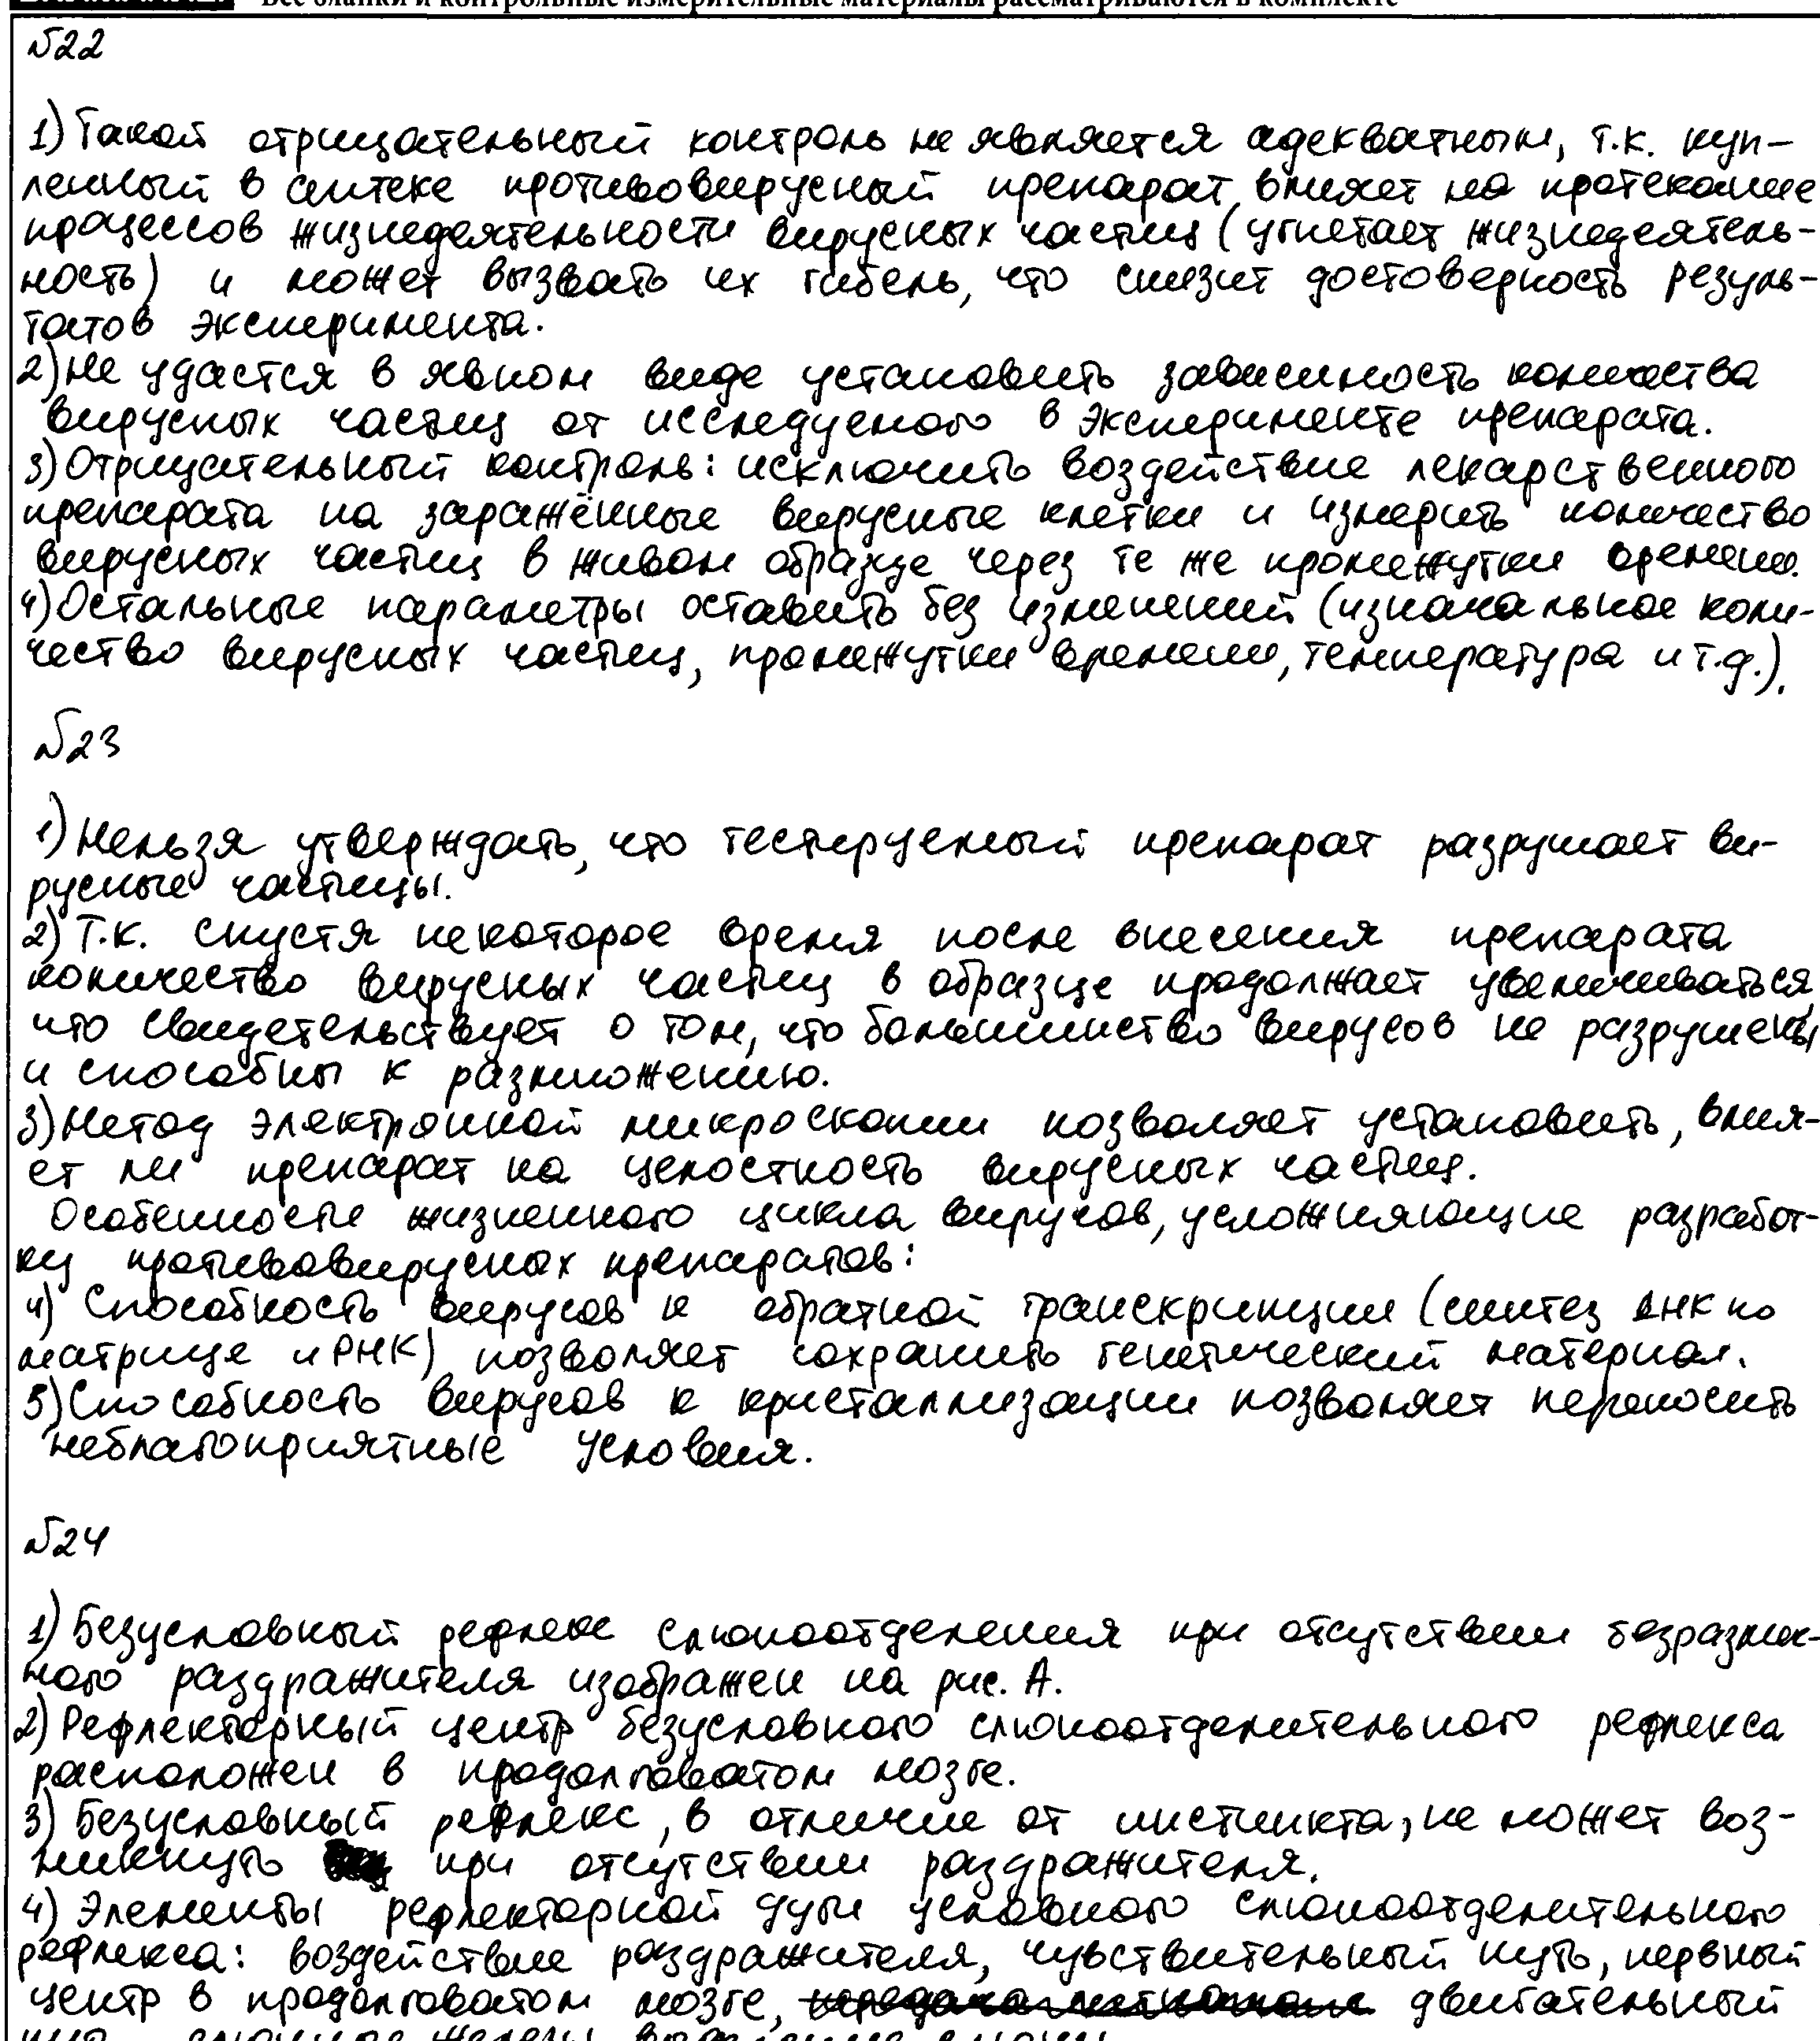 Все бланки и контрольные измерительные материалы рассматриваются в комплекте
№22
1) Такой отрицательный контроль не является адекватным, т.к. куп-
ленный в аптеке противовирусный препарат влияет на протекание
процессов жизнедеятельности вирусных частиц (угнетает жизнедеятель-
ность) и может вызвать их гибель, что снизит достоверность резуль-
татов эксперимента.
2) Не удастся в явном виде установить зависимость количества
вирусных частиц от исследуемого в эксперименте препарата.
3) Отрицательный контроль: исключить воздействие лекарственного
препарата на заражённые вирусные клетки и измерить количество
вирусных частиц в живом образце через те же промежутки времени.
4) Остальные параметры оставить без изменений (изначальное коли-
чество вирусных частиц, промежутки времени, температура и т.д.).
№23
1) Нельзя утверждать, что тестируемый препарат разрушает ви-
русные частицы.
2) Т.к. спустя некоторое время после внесения препарата
количество вирусных частиц в образце продолжает увеличиваться
что свидетельствует о том, что большинство вирусов не разрушены
и способны к размножению.
3) Метод электронной микроскопии позволяет установить, влия-
ет ли препарат на целостность вирусных частиц.
Особенности жизненного цикла вирусов, усложняющие разработ-
ку противовирусных препаратов:
4) Способность вирусов к обратной транскрипции (синтез ДНК по
матрице иРНК) позволяет сохранить генетический материал.
5) Способность вирусов к кристаллизации позволяет переносить
неблагоприятные условия.
№24
1) Безусловный рефлекс слюноотделения при отсутствии безразлич-
ного раздражителя изображен на рис. А.
2) Рефлекторный центр безусловного слюноотделительного рефлекса
расположен в продолговатом мозге.
3) Безусловный рефлекс, в отличие от инстинкта, не может воз-
никнуть при отсутствии раздражителя.
4) Элементы рефлекторной дуги условного слюноотделительного
рефлекса: воздействие раздражителя, чувствительный путь, нервный
центр в продолговатом мозге, двигательный